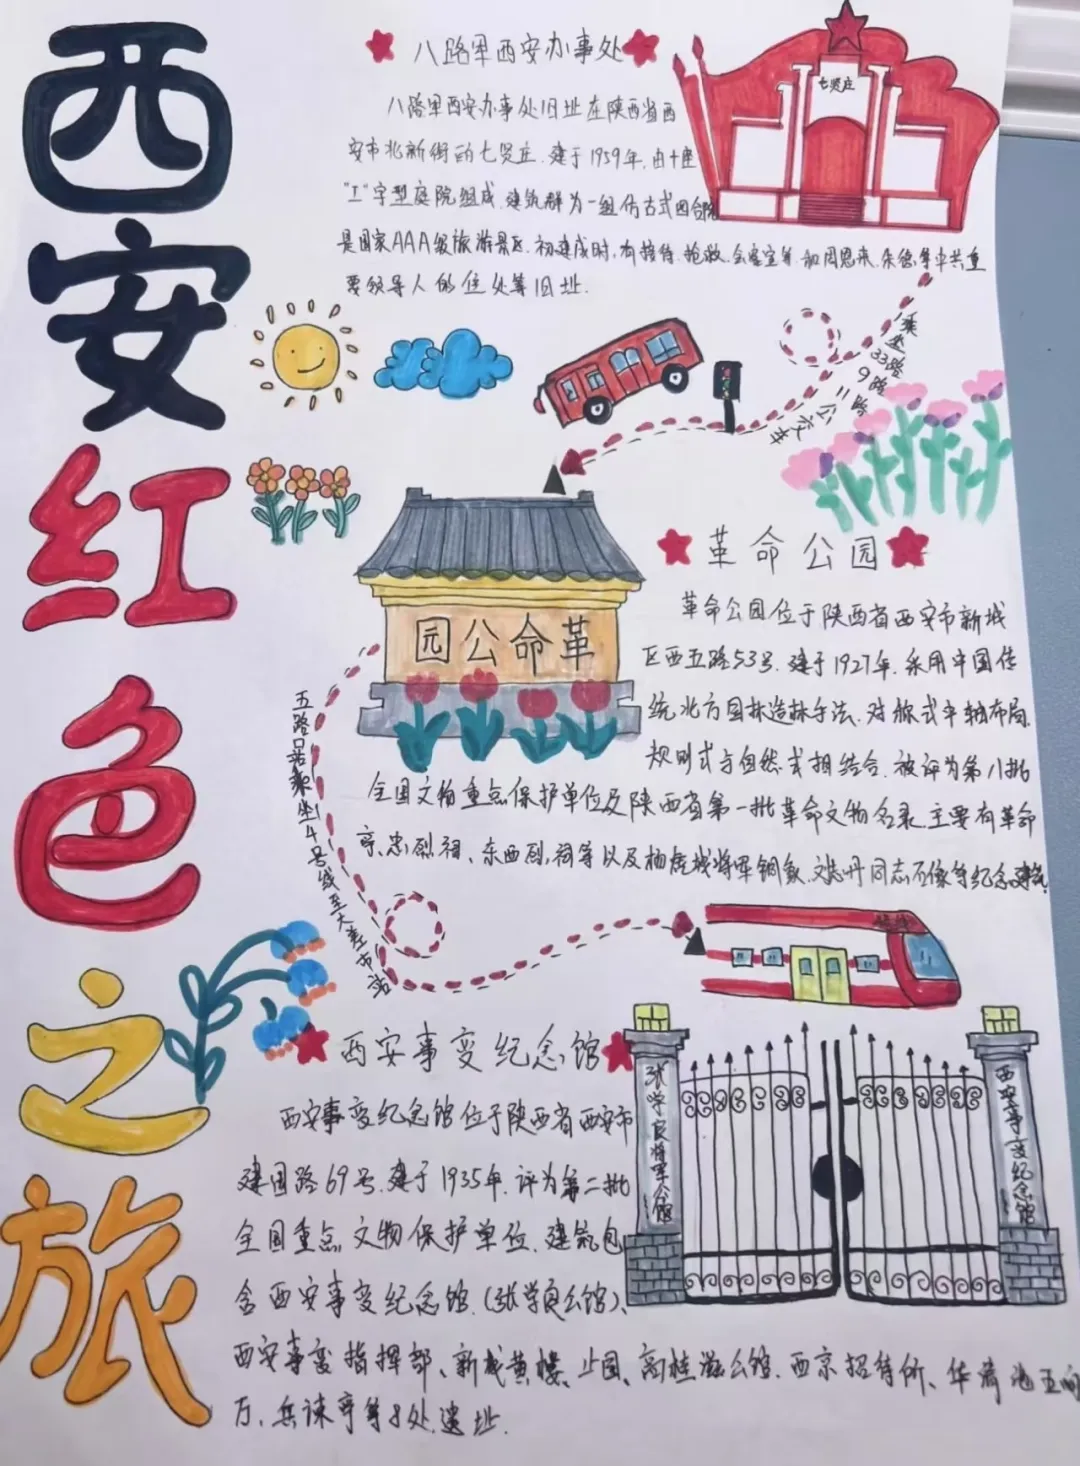 西安红色之旅
八路军西安办事处
七贤庄
八路军西安办事处旧址在陕西省西
安市北新街的七贤庄.建于1959年,由十座
"工"字型庭院组成.建筑群为一组仿古式四合院
是国家AAA级旅游景区.初建成时,有接待.抢救.会客室等.和周恩来.朱德.等中共重
要领导人的住处等旧址.
乘坐33路9路11路公交车
革命公园
革命公园
革命公园位于陕西省西安市新城
区西五路53号.建于1927年.采用中国传
统北方园林造林手法.对称式中轴布局.
规则式与自然式相结合.被评为第八批
全国文物重点保护单位及陕西省第一批革命文物名录.主要有革命
亭、忠烈祠、东西烈祠等以及杨虎城将军铜象.刘志丹同志石像等纪念建筑.
五路口站乘坐4号线至大差市站
西安事变纪念馆
张学良将军公馆
西安事变纪念馆
西安事变纪念馆位于陕西省西安市
建国路69号.建于1935年.评为第二批
全国重点文物保护单位.建筑包
含西安事变纪念馆.(张学良公馆)、
西安事变指挥部、新城黄楼、止园、高桂滋公馆.西京招待所、华清池五间
厅、兵谏亭等8处遗址.